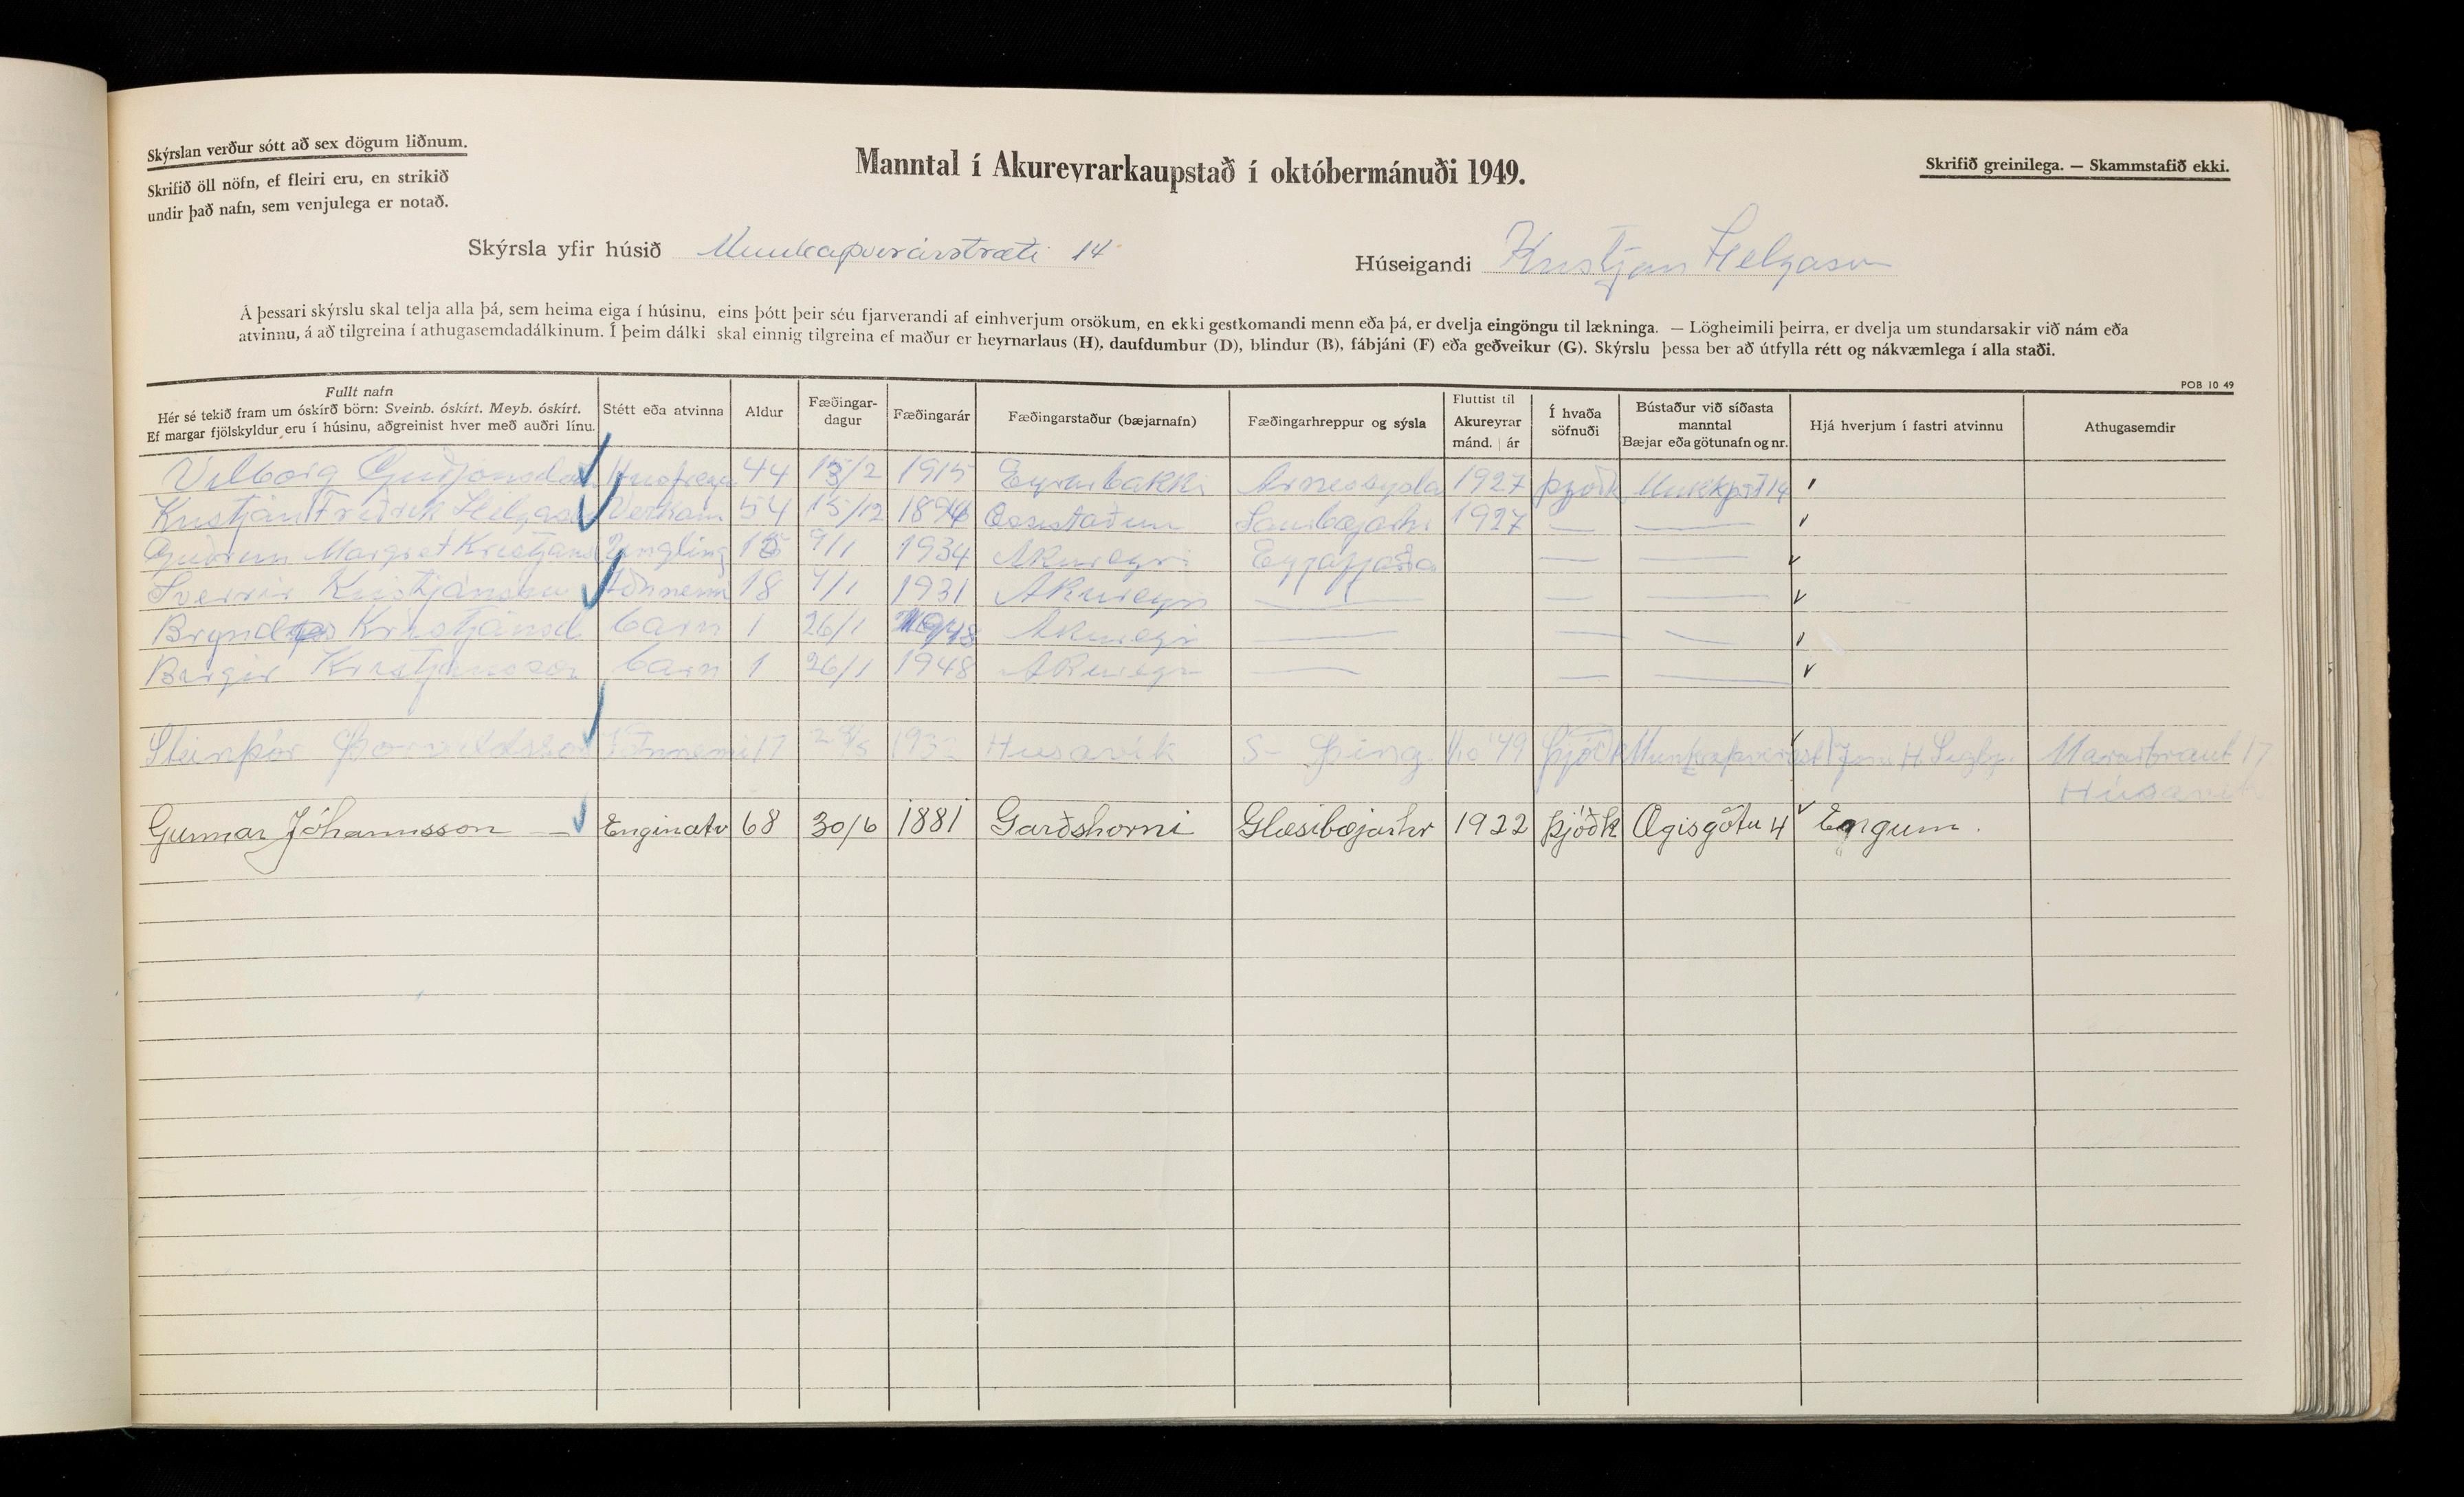 Skýrslan verður sótt að sex dögum liðnum.
Skrifið öll nöfn, ef fleiri eru, en strikið
undir það nafn, sem venjulega er notað.
Manntal í Akureyrarkaupstað í októbermánuði 1949.
Skrifið greinilega. — Skammstafið ekki.
Skýrsla yfir húsið Munkaþverárstræti 14
Húseigandi Kristján Helgason
Á þessari skýrslu skal telja alla þá, sem heima eiga í húsinu, eins þótt þeir séu fjarverandi af einhverjum orsökum, en ekki gestkomandi menn eða þá, er dvelja eingöngu til lækninga. — Lögheimili þeirra, er dvelja um stundarsakir við nám eða
atvinnu, á að tilgreina í athugasemdadálkinum. Í þeim dálki skal einnig tilgreina ef maður er heyrnarlaus (H), daufdumbur (D), blindur (B), fábjáni (F) eða geðveikur (G). Skýrslu þessa ber að útfylla rétt og nákvæmlega í alla staði.
POB 10 49
Fullt nafn
Hér sé tekið fram um óskírð börn: Sveinb. óskírt. Meyb. óskírt.
Ef margar fjölskyldur eru í húsinu, aðgreinist hver með auðri línu.
Stétt eða atvinna
Aldur
Fæðingar-
dagur
Fæðingarár
Fæðingarstaður (bæjarnafn)
Fæðingarhreppur og sýsla
Fluttist til
Akureyrar
mánd. | ár
Í hvaða
söfnuði
Bústaður við síðasta
manntal
Bæjar eða götunafn og nr.
Hjá hverjum í fastri atvinnu
Athugasemdir
Vilborg Guðjónsdót 44 1915 Eyrarbakki Arnessysla 1927 þjóðk 14
Kristján Friðrik Helgason Verkam 54 15/12 Öxnadal 1927
Guðrun Margret Kristjans Unglling 9/1 1934 Akureyri
Sverrir Kristjánsson Iðnnemi 18 7/1 1931 Akureyri
Kristjánsd barn 1 26/1 1948 Akureyri
Birgir Kristjansson barn 1 26/1 1948 Akureyri
Steinþór Þorvaldsson Iðnnemi 17 Husavík S- Þing. '49 Þjóðk Munkaþverást
Húsavik
Gunnar Jóhannsson — Enginatv 68 30/6 1881 Garðshorni Glæsibæjarhr 1922 Þjóðk Ægisgötu 4 Engum.